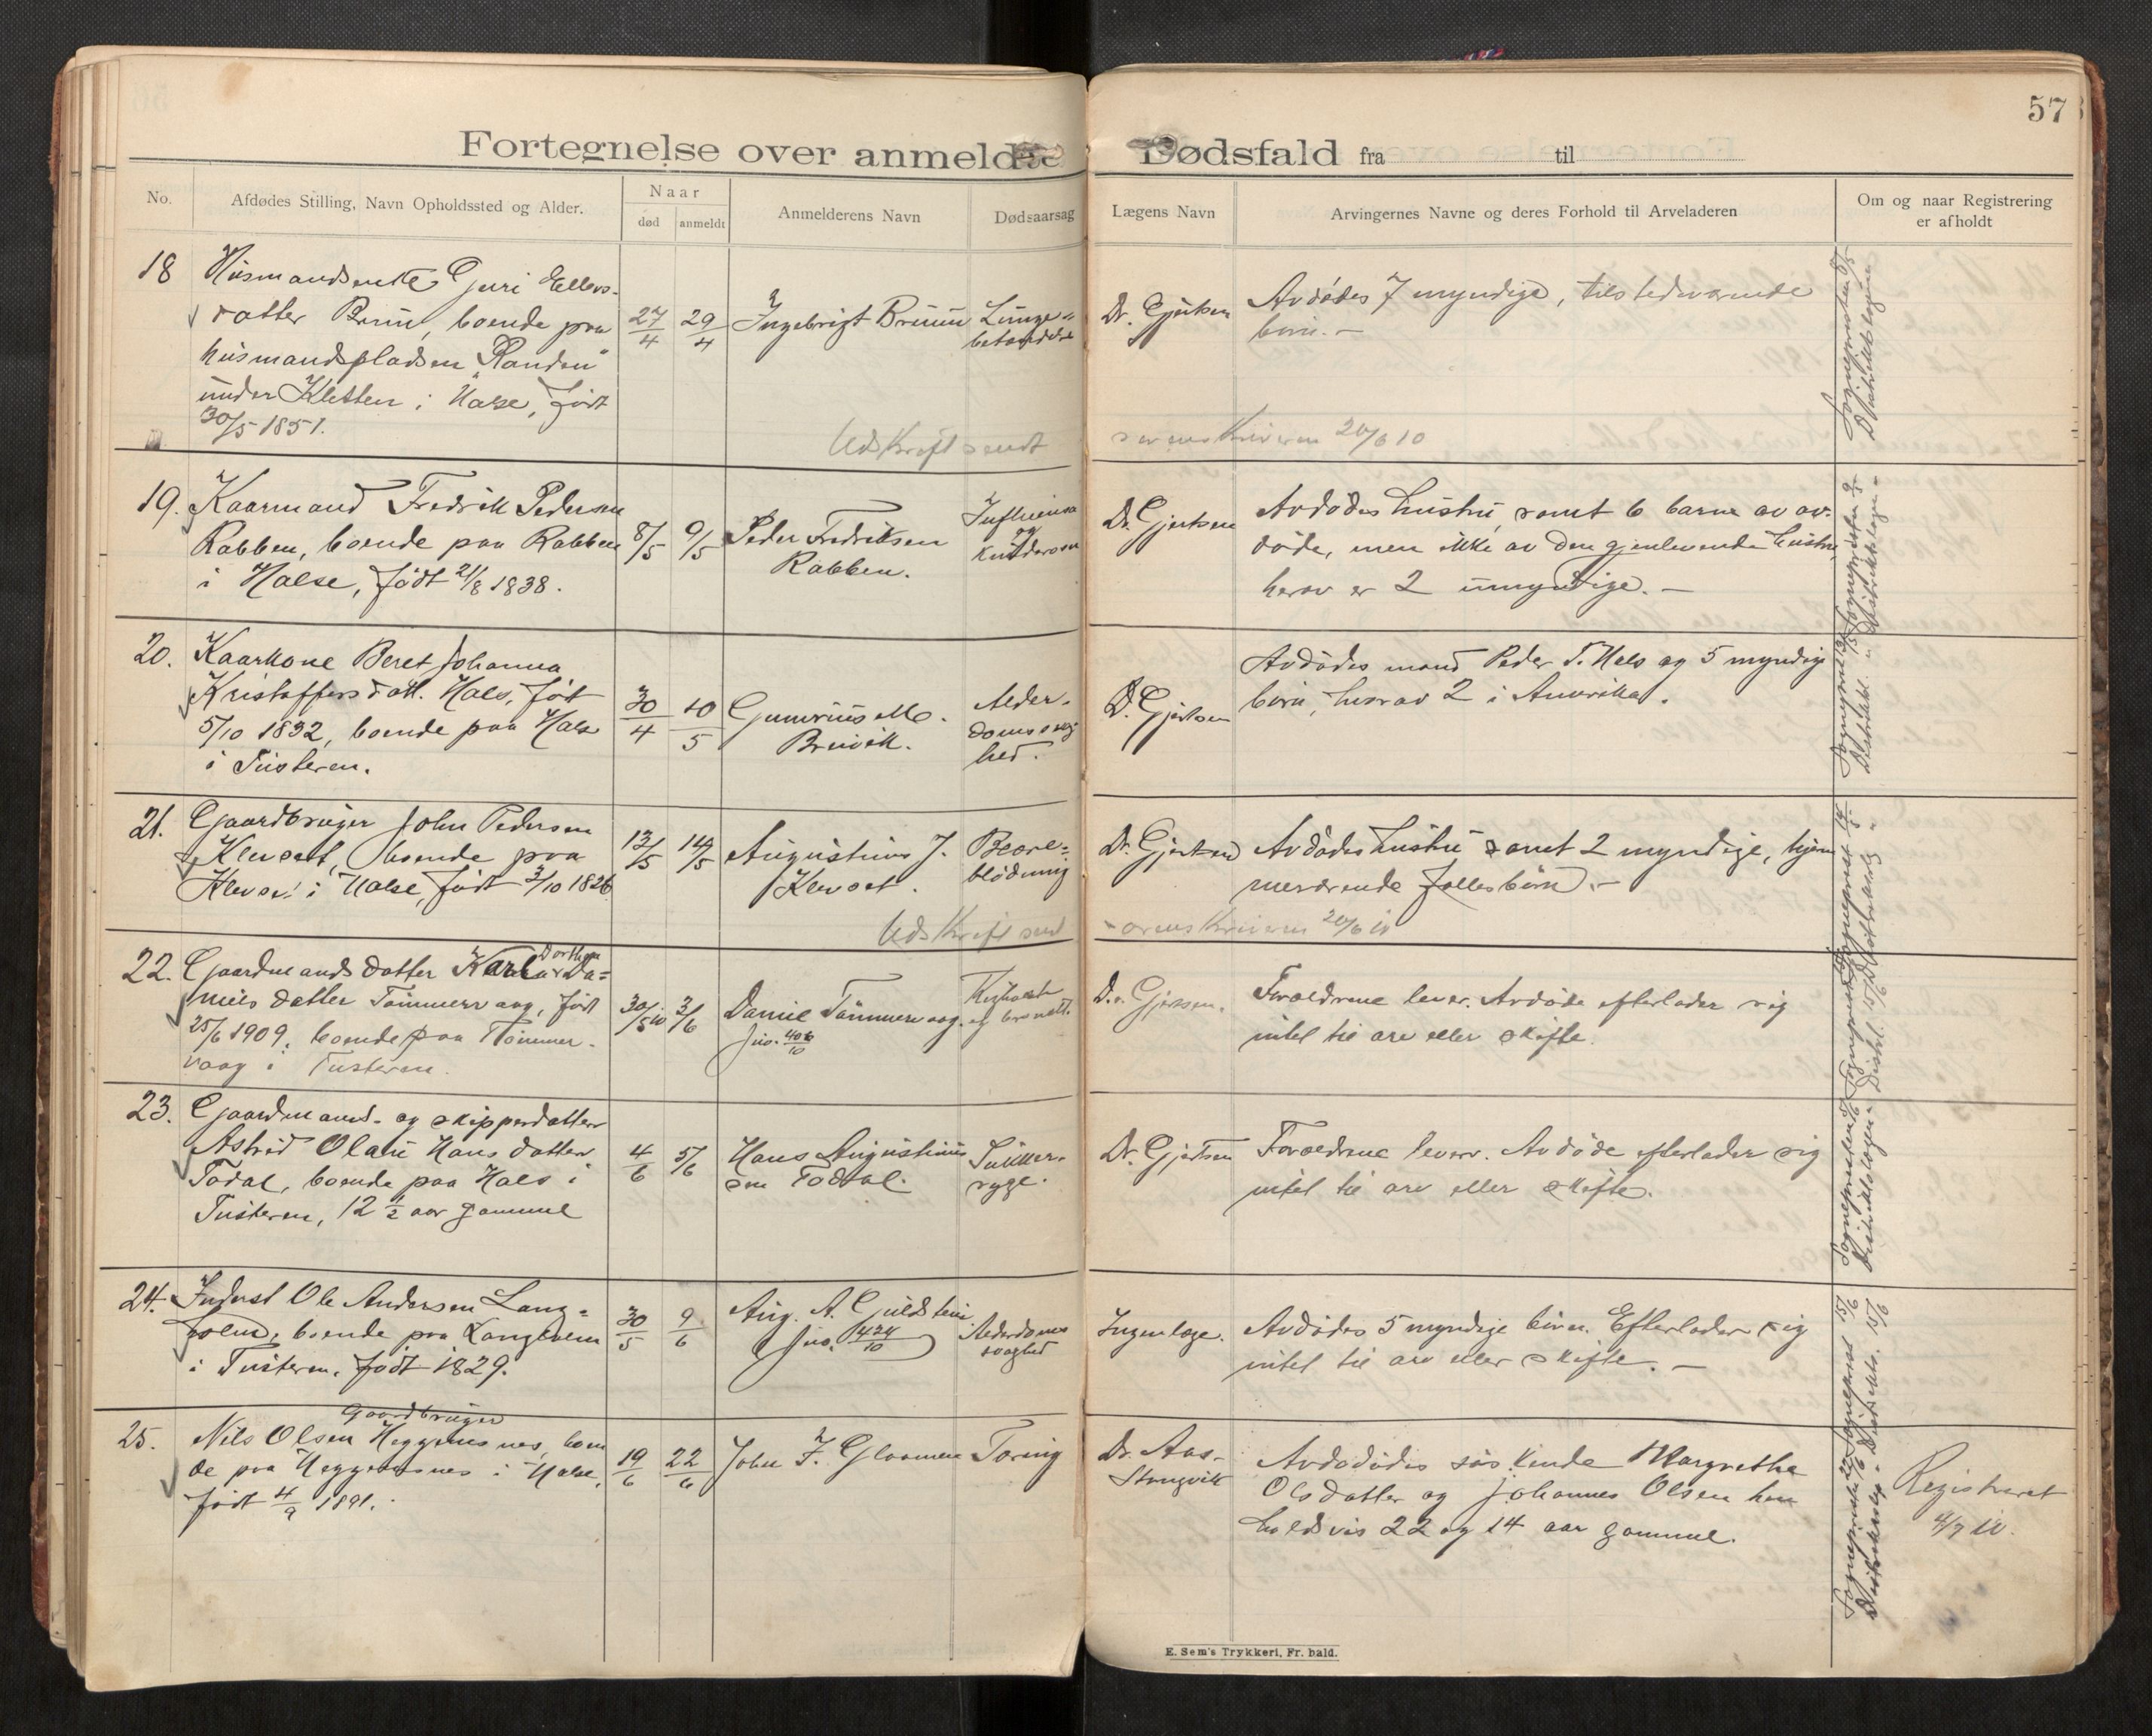 57
Fortegnelse over anmeldte Dødsfald fra til
No.
Afdødes Stilling, Navn Opholdssted og Alder.
Naar
død
anmeldt
Anmelderens Navn
Dødsaarsag
Lægens Navn
Arvingernes Navne og deres Forhold til Arveladeren
Om og naar Registrering
er afholdt
18
Husmandsenke Guri Ellevs-
datter Bruun, boende paa
husmandspladsen "Randen"
under Kletten i Halse, født
30/5 1851.
27/4
29/4
Ingebrigt Bruun
Lunge-
betændelse
Dr. Gjertsen
Avdødes 7 myndige, tilstedværende
børn. -
Udskrift sendt
sorenskriveren 20/6 10
19.
Kaarmand Fredrik Pedersen
Rabben, boende paa Rabben
i Halse, født 21/8 1838.
8/5
9/5
Peder Fredriksen
Rabben.
Influensa
og
Dr. Gjertsen
Avdødes hustru, samt 6 barn av av-
døde, men ikke av den gjenlevende hustru,
herav er 2 umyndige. -
20.
Kaarkone Beret Johanna
Kristoffersdatt. Hals, født
5/10 1832, boende paa Hals
i Tusteren.
30/4
10/5
Bruvik.
Alder-
domssvag
hed.
D. Gjertsen
Avdødes mand Peder T. Hals og 5 myndige
børn, hvorav 2 i Amerika.
21.
Gaardbruger John Pedersen
Klevset, boende paa
Klevset i Halse, født 3/10 1826
13/5
14/5
Augustinus J.
Klevset.
blødning
Dr. Gjertsen
Avdødes hustru samt 2 myndige, hjem
meværende fællesbørn. -
Udskrift sendt
sorenskriveren 20/6 10
22.
Gaardmandsdatter Karla Dorthea Da-
nielsdatter Tømmervaag, født
25/6 1909, boende paa Tømmer-
vaag i Tusteren.
30/5 10
3/6
Daniel Tømmervaag.
Jno. 406/10
Kighoste
og bronkit.
Dr. Gjertsen.
Foreldrene lever. Avdøde efterlader sig
intet til arv eller skifte.
23.
Gaardmand- og skipperdatter
Astrid Olali Hansdatter
Todal, boende paa Hals i
Tusteren, 12 1/2 aar gammel
4/6
5/6
Hans Augustinus
sen Todal.
Sukker-
syge.
Dr. Gjertsen
Foreldrene lever. Avdøde efterlader sig
intet til arv eller skifte.
24.
Inderst Ole Andersen Lang-
holm, boende paa Langholm
i Tusteren, født 1829.
30/5
9/6
Aug. A. Guldstein.
Jno. 424/10
Alderdoms
svaghed
Ingen læge.
Avdødes 5 myndige børn. Efterlader sig
intet til arv eller skifte. -
25.
Gaardbruger
Nils Olsen Heggemsnes, boen
de paa Heggemsnes i Halse,
født 4/9 1891.
19/6
22/6
John F. Glaamen
Tæring
Dr. Aas-
Strangvik
Avdødes søskende Margrethe
Olsdatter og Johannes Olsen hen
holdsvis 22 og 14 aar gammel.
Registreret
4/7 10.
E. Sem's Trykkeri, Fr. hald.